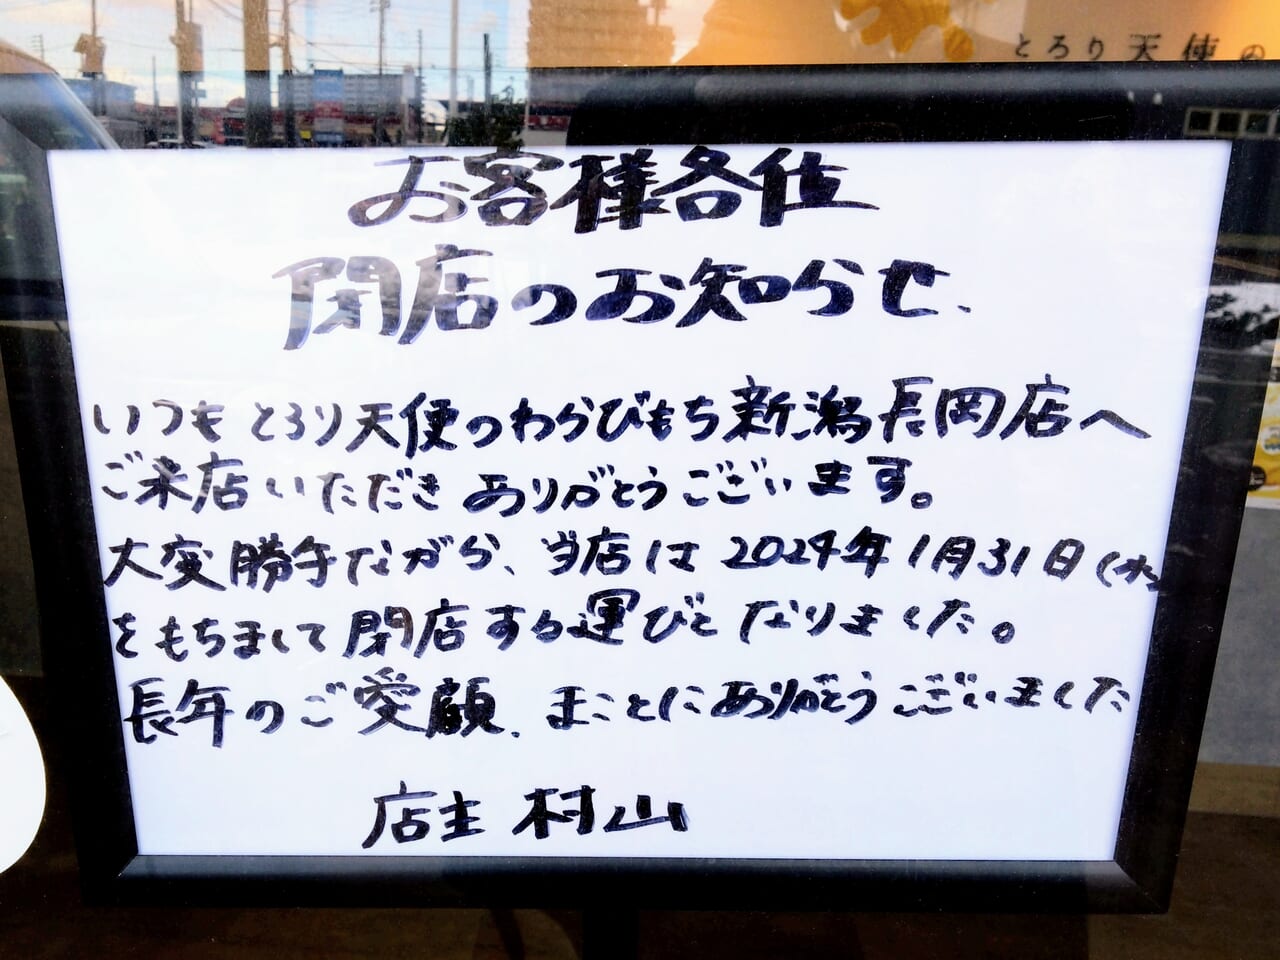 とろり天使の
お客様各位
閉店のお知らせ、
いつもとろり天使のわらびもち新潟長岡店へ
ご来店いただきありがとうございます。
大変勝手ながら、当店は2024年1月31日(水)
をもちまして閉店する運びとなりました。
長年のご愛顧、まことにありがとうございました
店主 村山